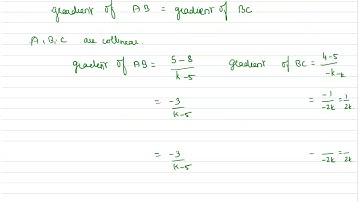 gradient of AB = gradient of BC
A, B, C are collinear.
gradient of AB = 5-8/k-5 gradient of BC = 4-5/-k-k
= -3/k-5 = -1/-2k = 1/2k
= -3/k-5 - /-2k = /2k